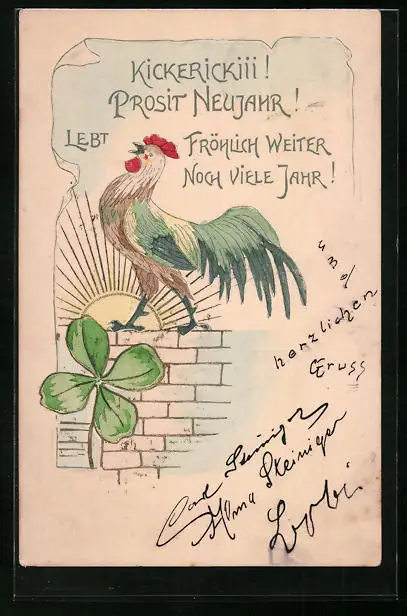 Kickerickiii!
Prosit Neujahr!
Lebt Fröhlich Weiter
Noch Viele Jahr!
herzlichen
Gruss
Steiniger
Alma Steiniger